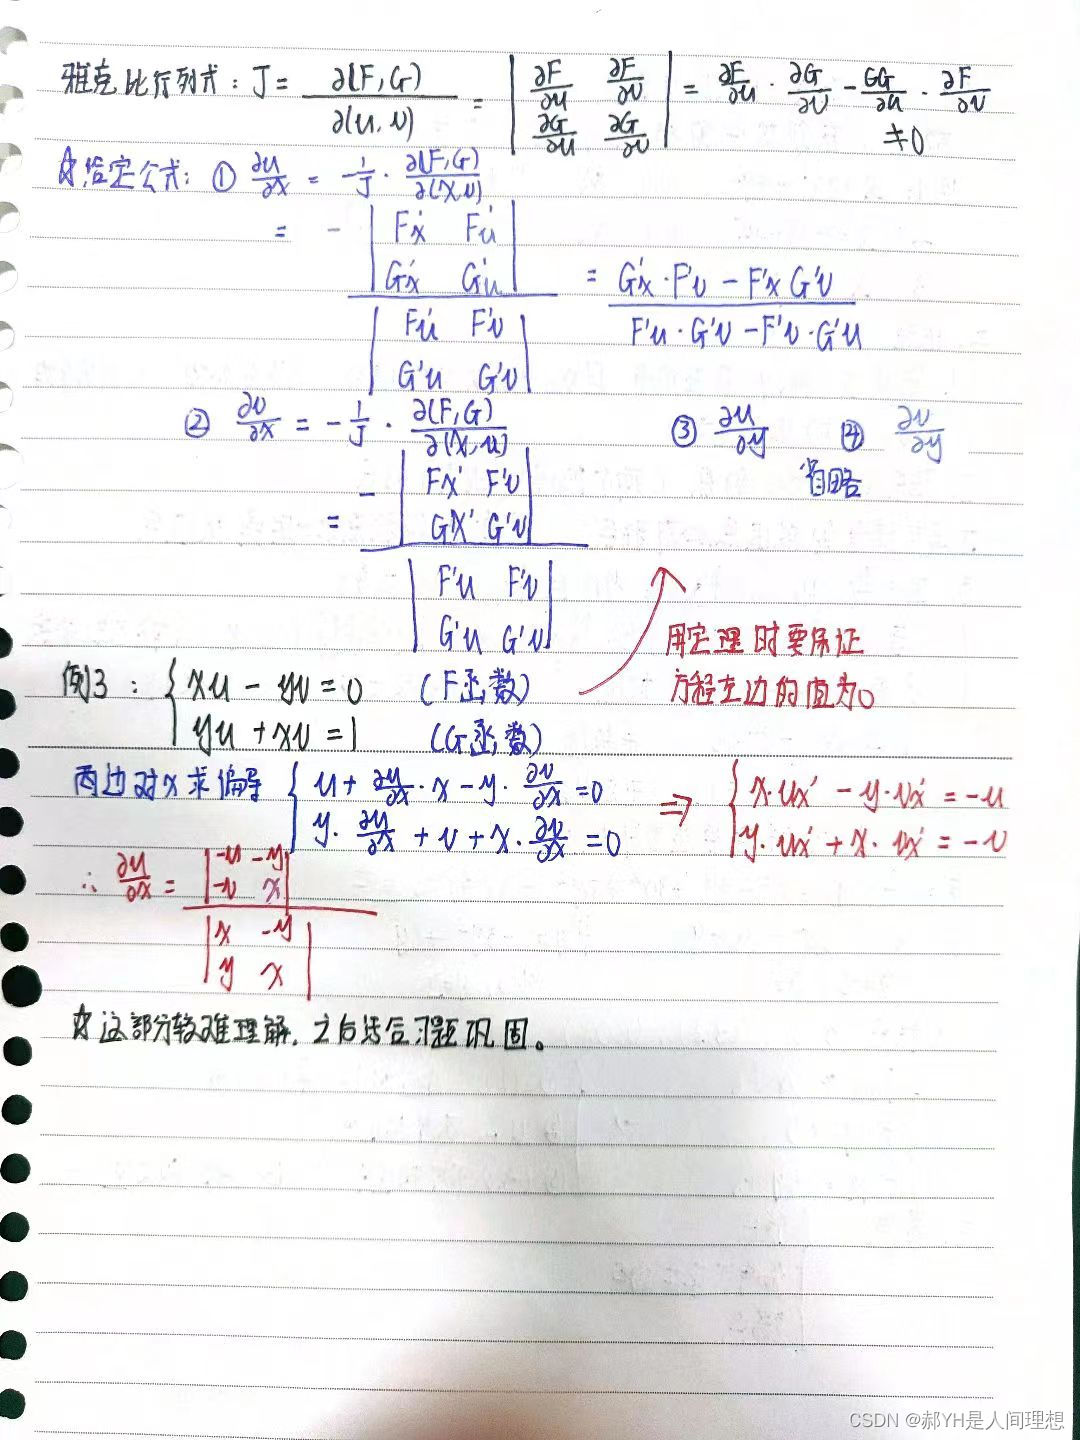 雅克比行列式：J = ∂(F,G)/∂(u,v) = |∂F/∂u ∂F/∂v; ∂G/∂u ∂G/∂v| = ∂F/∂u · ∂G/∂v - GG/∂u · ∂F/∂v ≠0
☆给定公式：① ∂u/∂x = -1/J · ∂(F,G)/∂(x,v)
= - |Fx' Fu'; Gx' Gu'| / |Fu' F'v; G'u G'v| = (G'x·F'v - F'x G'v) / (F'u·G'v - F'v·G'u)
② ∂v/∂x = -1/J · ∂(F,G)/∂(x,u) ③ ∂u/∂y ④ ∂v/∂y
省略
= - |Fx' F'v; Gx' G'v| / |F'u F'v; G'u G'v|
用定理时要保证
方程左边的值为0
例3：{ xu - yv = 0 (F函数)
yu + xv = 1 (G函数)
两边对x求偏导 { u + ∂u/∂x · x - y · ∂v/∂x = 0 ⇒ { x·ux' - y·vx' = -u
y · ∂u/∂x + v + x · ∂v/∂x = 0 y·ux' + x·vx' = -v
∴ ∂u/∂x = |-u -y; -v x| / |x -y; y x|
☆这部分较难理解，之后结合习题巩固。
CSDN @郝YH是人间理想